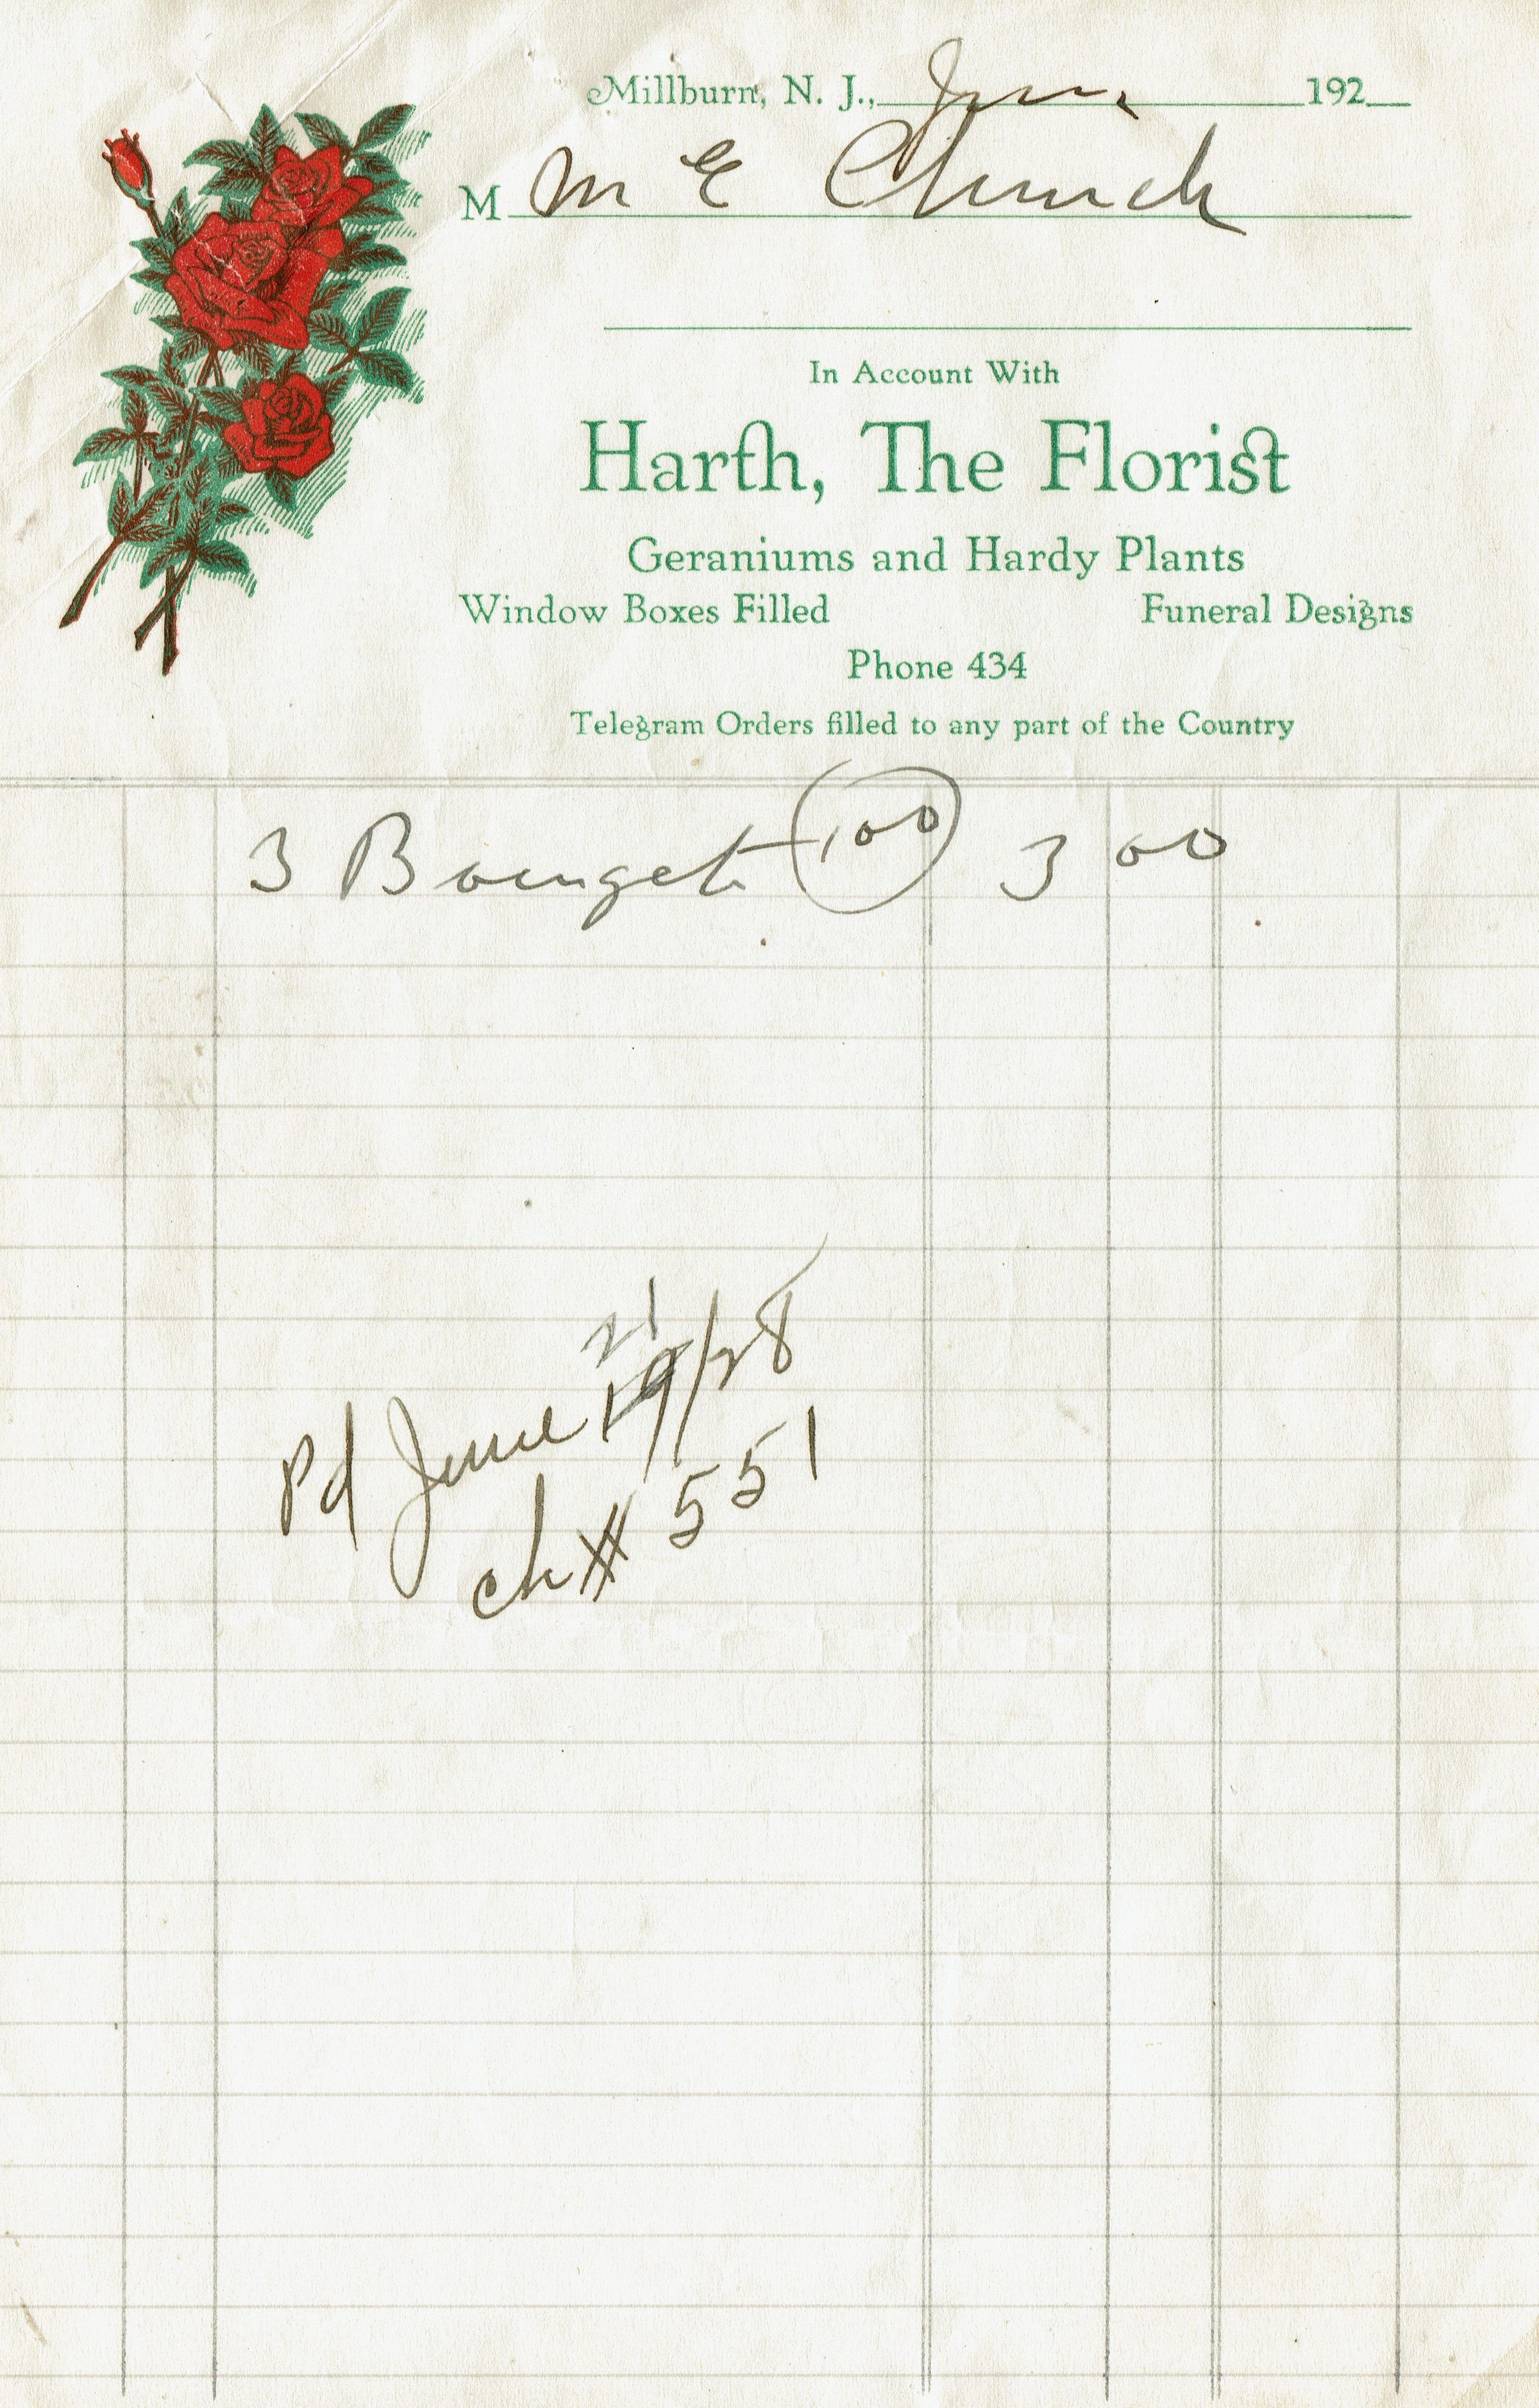 Millburn, N. J., June 192
M M E Church
In Account With
Harth, The Florist
Geraniums and Hardy Plants
Window Boxes Filled Funeral Designs
Phone 434
Telegram Orders filled to any part of the Country
3 Bouquets 100 3 00
21
Pd June 19/28
ch# 551